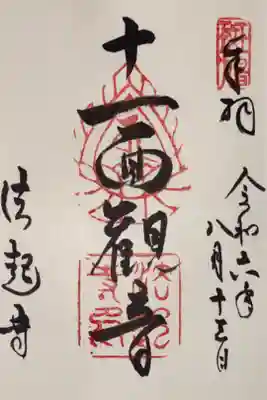 奉拝
令和六年
八月十三日
十一面観音
法起寺